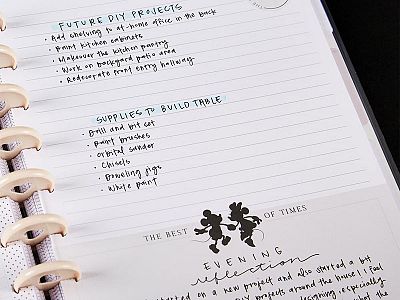 FUTURE DIY PROJECTS
· Add shelving to at-home office in the back
· Paint kitchen cabinets
· Makeover the kitchen pantry
· Work on backyard patio area
· Redecorate front entry hallway
SUPPLIES TO BUILD TABLE
· Drill and bit set
· Paint brushes
· Orbital sander
· Chisels
· Doweling jigs
· White paint
THE BEST OF TIMES
EVENING
reflection
started on a new project and also started a bit
DIY projects around the house I feel
designing, especially
the